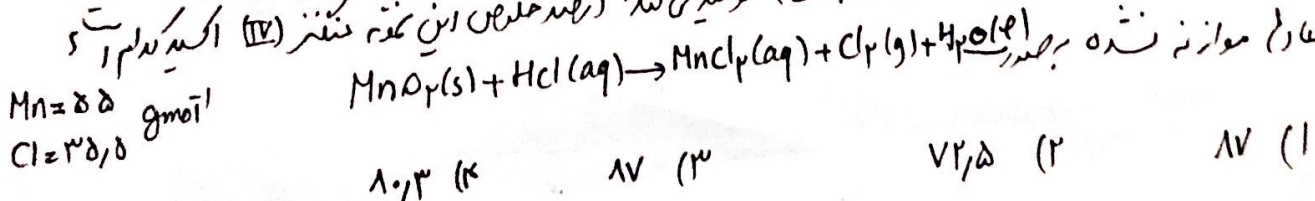 درصد خلوص این نمونه منگنز (IV) اکسید کدام است؟
معادله موازنه نشده برصورت
MnO۲(s) + HCl(aq) → MnCl۲(aq) + Cl۲(g) + H۲O(l)
Mn = ۵۵
Cl = ۳۵,۵ gmol⁻¹
۱) ۸۷ ۲) ۷۲,۵ ۳) ۸۷ ۴) ۸۰,۳